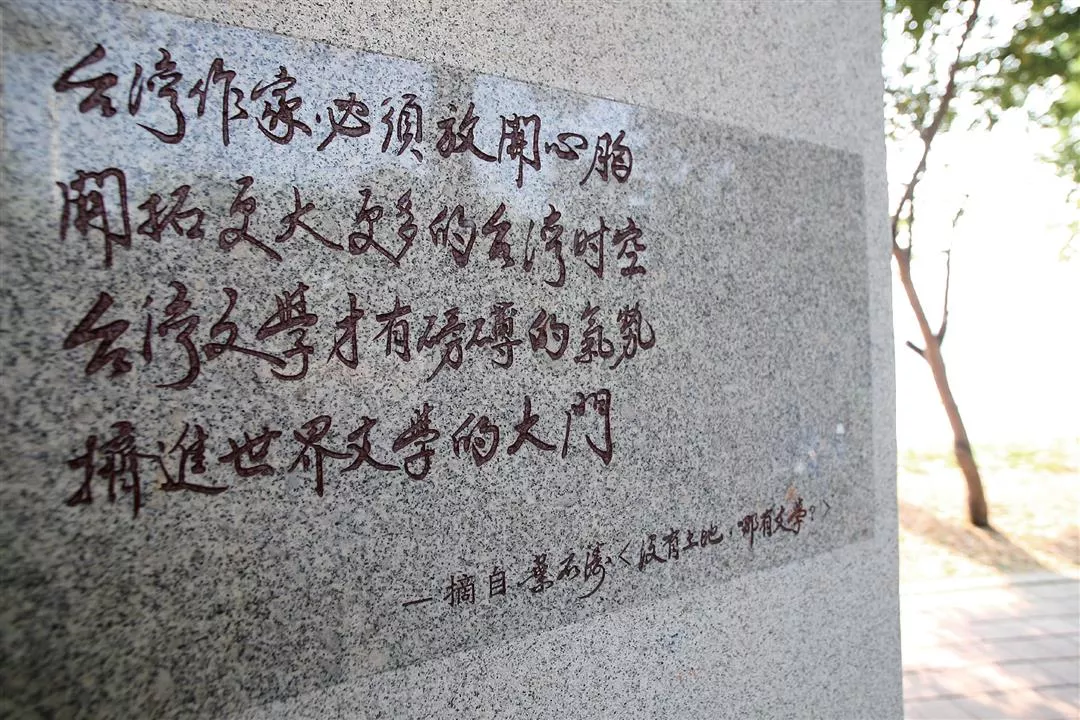 台湾作家必須放開心胸
開拓更大更多的台湾时空
台湾文學才有磅礴的氣勢
擠進世界文學的大門
—摘自葉石濤〈沒有土地,哪有文學?〉